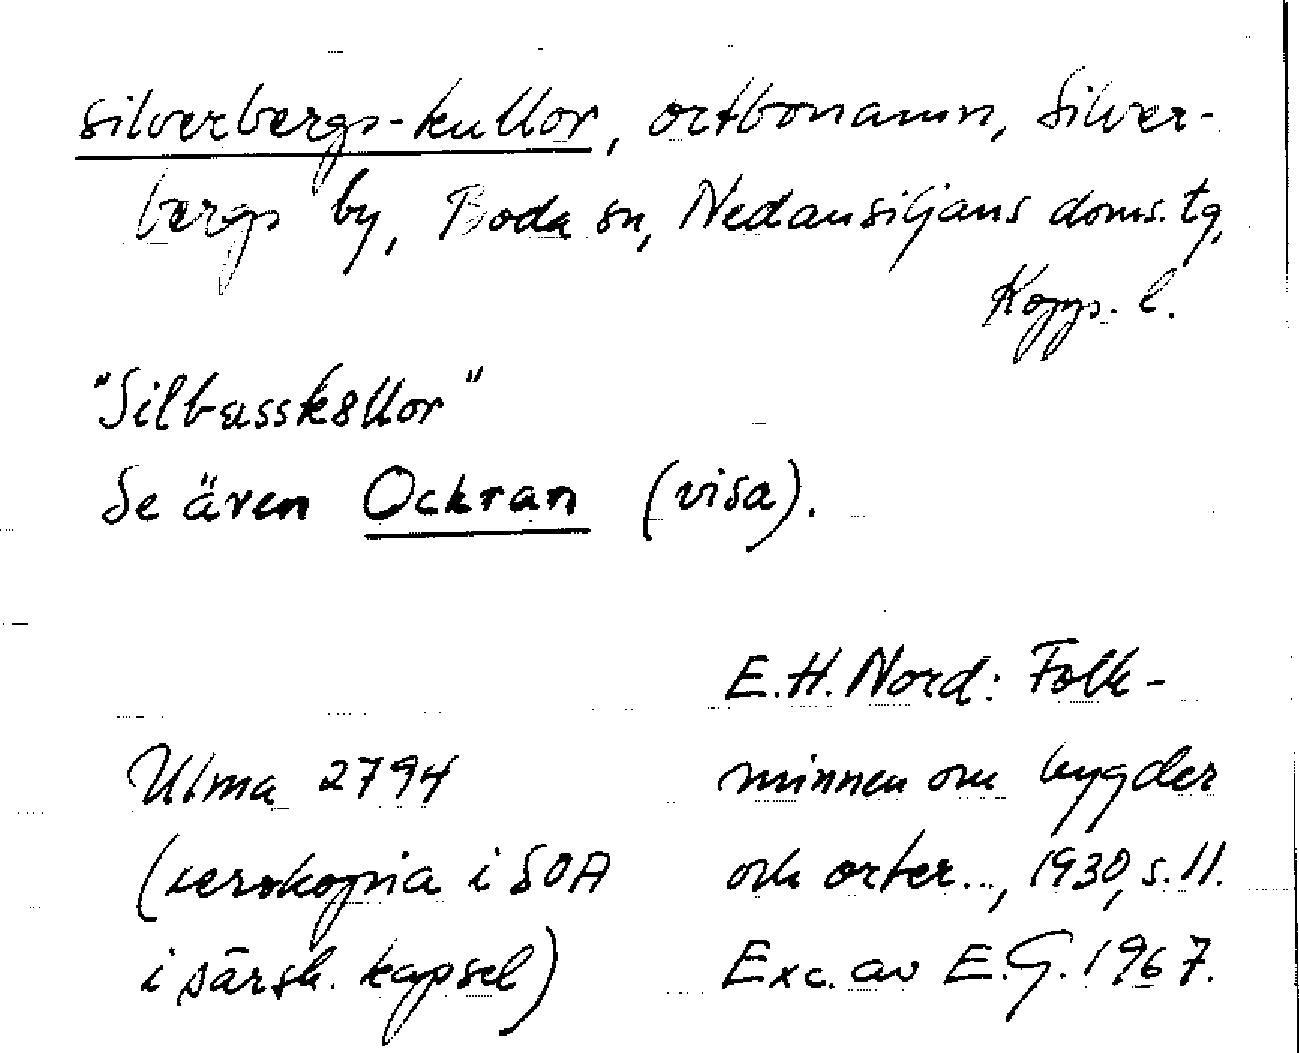 silverbergs-kullor, ortbonamn, Silver-
bergs by, Boda sn, Nedansiljans doms. tg,
Kopp. l.
"Silbasskullor"
Se även Ockran (visa).
E.H. Nord: Folk-
minnen om bygder
och orter..., 1930, s. 11.
Exc. av E.G. 1967.
Ulma 2794
(xerokopia i SOA
i särsk. kapsel)